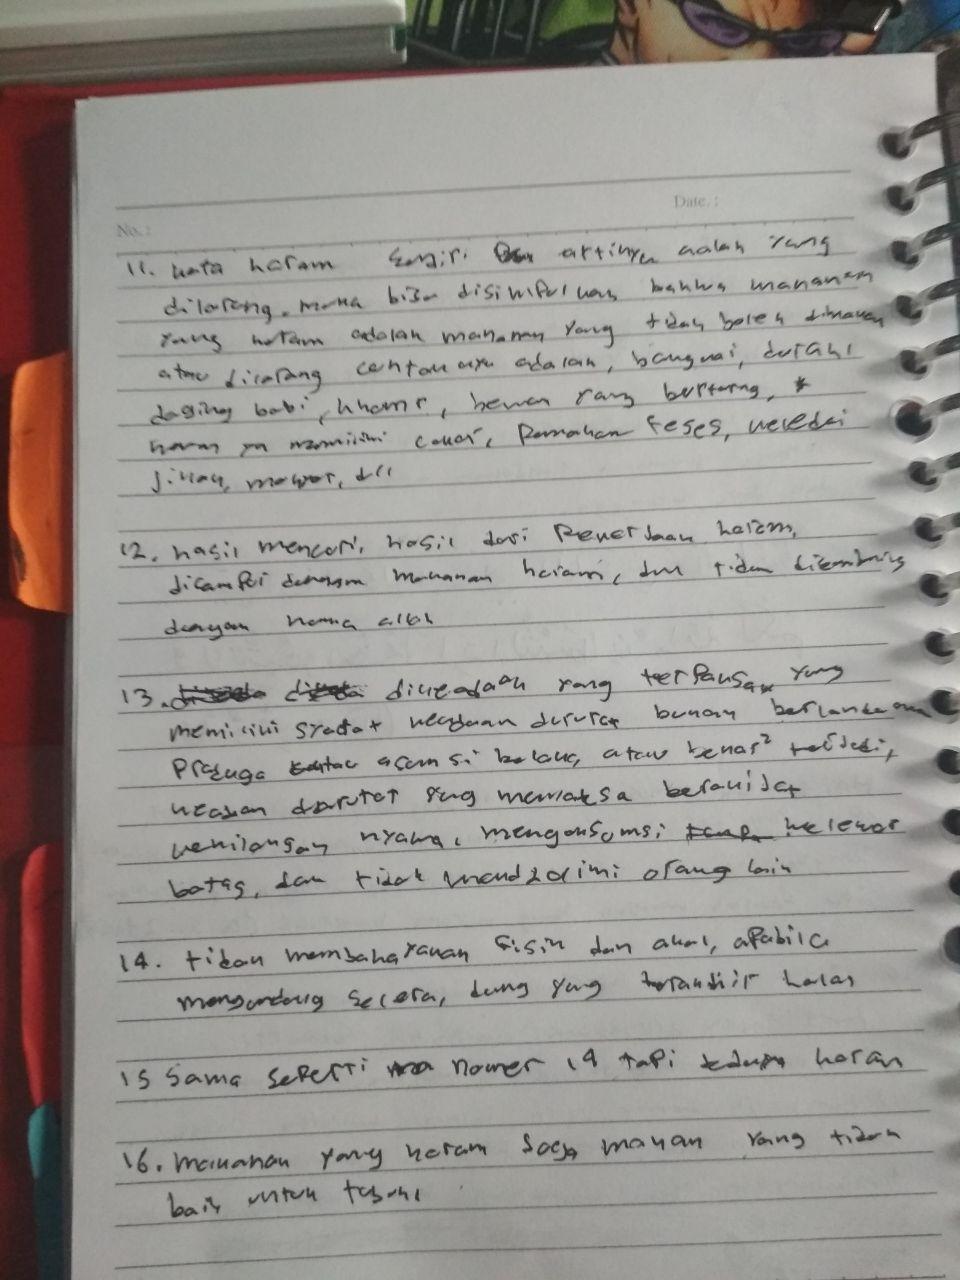 No.:
Date. :
11. kata haram sendiri artinya adalah yang
dilarang. maka bisa disimpulkan bahwa makanan
yang haram adalah makanan yang tidak boleh dimakan
atau dilarang contohnya adalah, bangkai, darah
daging babi, khamr, hewan yang bertaring,
haram ya memiliki cakar, Pemakan feses, keledai
jinak, mawar, dll
12. hasil mencuri, hasil dari Pekerjaan haram,
dicampur dengan makanan haram, dan tidak
dengan nama allah
13. dikeadaan yang terPaksa, yang
memiliki syarat keadaan darurat bukan
Praduga asumsi belaka, atau benar² terjadi,
keadaan darurat yang memaksa berakibat
kehilangan nyawa, mengonsumsi melewat
batas, dan tidak mendzolimi orang lain
14. tidak membahayakan fisik dan akal, aPabila
mengandung secara, yang terakhir halal
15 Sama sePerti nomer 14 tapi haram
16. makanan yang haram Saja makan yang tidak
baik untuk tubuh